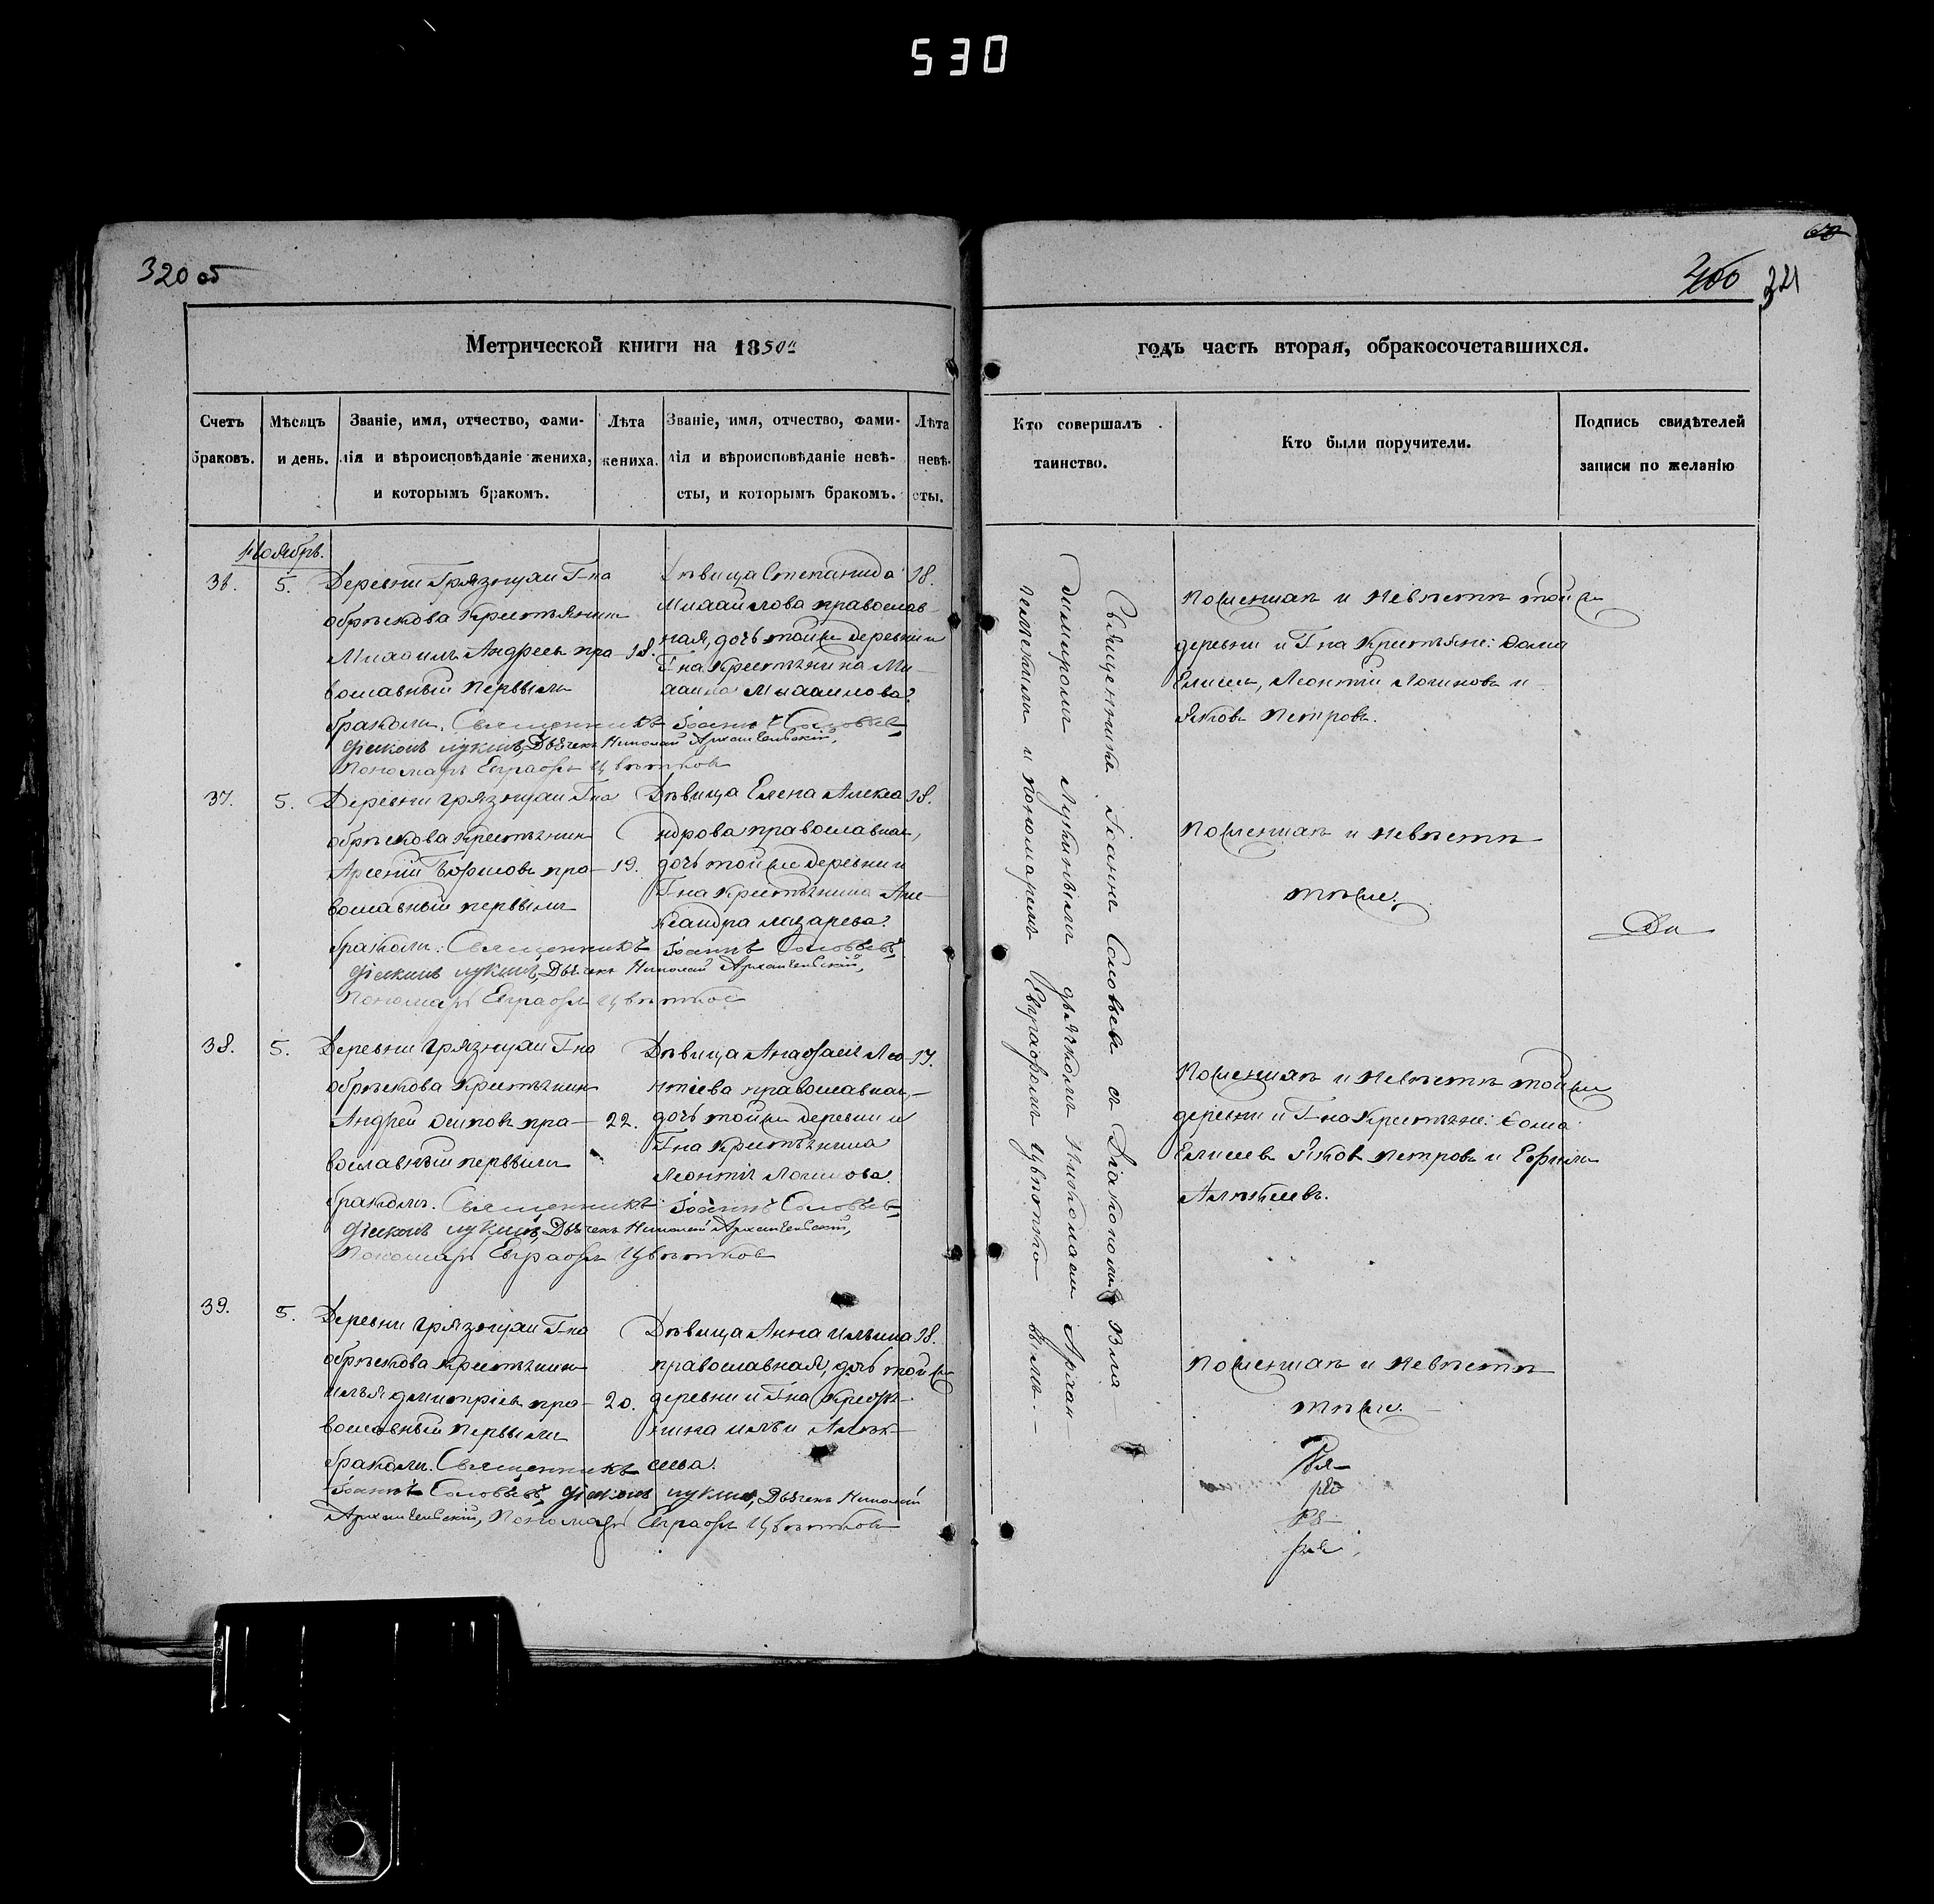 530
320 об
321
Метрической книги на 1850й
годъ часть вторая, обракосочетавшихся.
Счетъ браковъ.
Мѣсяцъ и день.
Званіе, имя, отчество, фами-
лія и вѣроисповѣданіе жениха,
и которымъ бракомъ.
Лѣта
жениха.
Званіе, имя, отчество, фами-
лія и вѣроисповѣданіе невѣ-
сты, и которымъ бракомъ.
Лѣта
невѣ-
сты.
Кто совершалъ
таинство.
Кто были поручители.
Подпись свидѣтелей
записи по желанію
Ноябрь.
36. 5.
Деревни Грязнухи Г-на
Обрѣскова Крестьянинъ
Михаилъ Андреевъ пра-
вославный первымъ
бракомъ. Священникъ Іоаннъ Соловьевъ,
Діаконъ Лукинъ, Дьячекъ Николай Архангельскій,
Пономарь Евграфъ Цвѣтковъ
18.
Дѣвица Степанида
Михайлова православ-
ная, дочь той же деревни и
Г-на Крестьянина Ми-
хаила Михаилова.
18.
Поженихѣ и Невѣстѣ той же
деревни и Г-на Крестьяне: Фома
Елисеевъ, Леонтій Логиновъ и
Яковъ Петровъ.
37. 5.
Деревни Грязнухи Г-на
Обрѣскова Крестьянинъ
Арсеній Ефимовъ пра-
вославный первымъ
бракомъ: Священникъ Іоаннъ Соловьевъ,
Діаконъ Лукинъ, Дьячекъ Николай Архангельскій,
Пономарь Евграфъ Цвѣтков
19.
Дѣвица Елена Алекса
ндрова православная,
дочь той же деревни и
Г-на Крестьянина Але-
ксандра Лазарева.
18.
Поженихѣ и невѣстѣ
тѣже.
38. 5.
Деревни Грязнухи Г-на
Обрѣскова Крестьянинъ
Андрей Осиповъ пра-
вославный первымъ
бракомъ. Священникъ Іоаннъ Соловьевъ,
Діаконъ Лукинъ, Дьячекъ Николай Архангельскій,
Пономарь Евграфъ Цвѣтков
22.
Дѣвица Анафасія Лео-
нтіева православная,
дочь той же деревни и
Г-на Крестьянина
Леонтія Логинова.
17.
Поженихѣ и Невѣстѣ той же
деревни и Г-на Крестьяне: Фома
Елисеевъ Яковъ Петровъ и Ефимъ
Алексѣевъ.
39. 5.
Деревни Грязнухи Г-на
Обрѣскова Крестьянинъ
Илья Дмитріевъ пра-
вославный первымъ
бракомъ. Священникъ
Іоаннъ Соловьевъ, Діаконъ Лукинъ, Дьячекъ Николай
Архангельскій, Пономарь Евграфъ Цвѣтковъ
20.
Дѣвица Анна Ильина
православная, дочь той же
деревни и Г-на Крестья-
нина Ильи Алек-
сѣева.
18.
Поженихѣ и невѣстѣ
тѣже.
Священникъ Іоаннъ Соловьевъ съ Діакономъ Вла
диміромъ Лукинымъ дьячкомъ Николаемъ Архан
гельскимъ и пономаремъ Евграфомъ Цвѣтко вымъ.